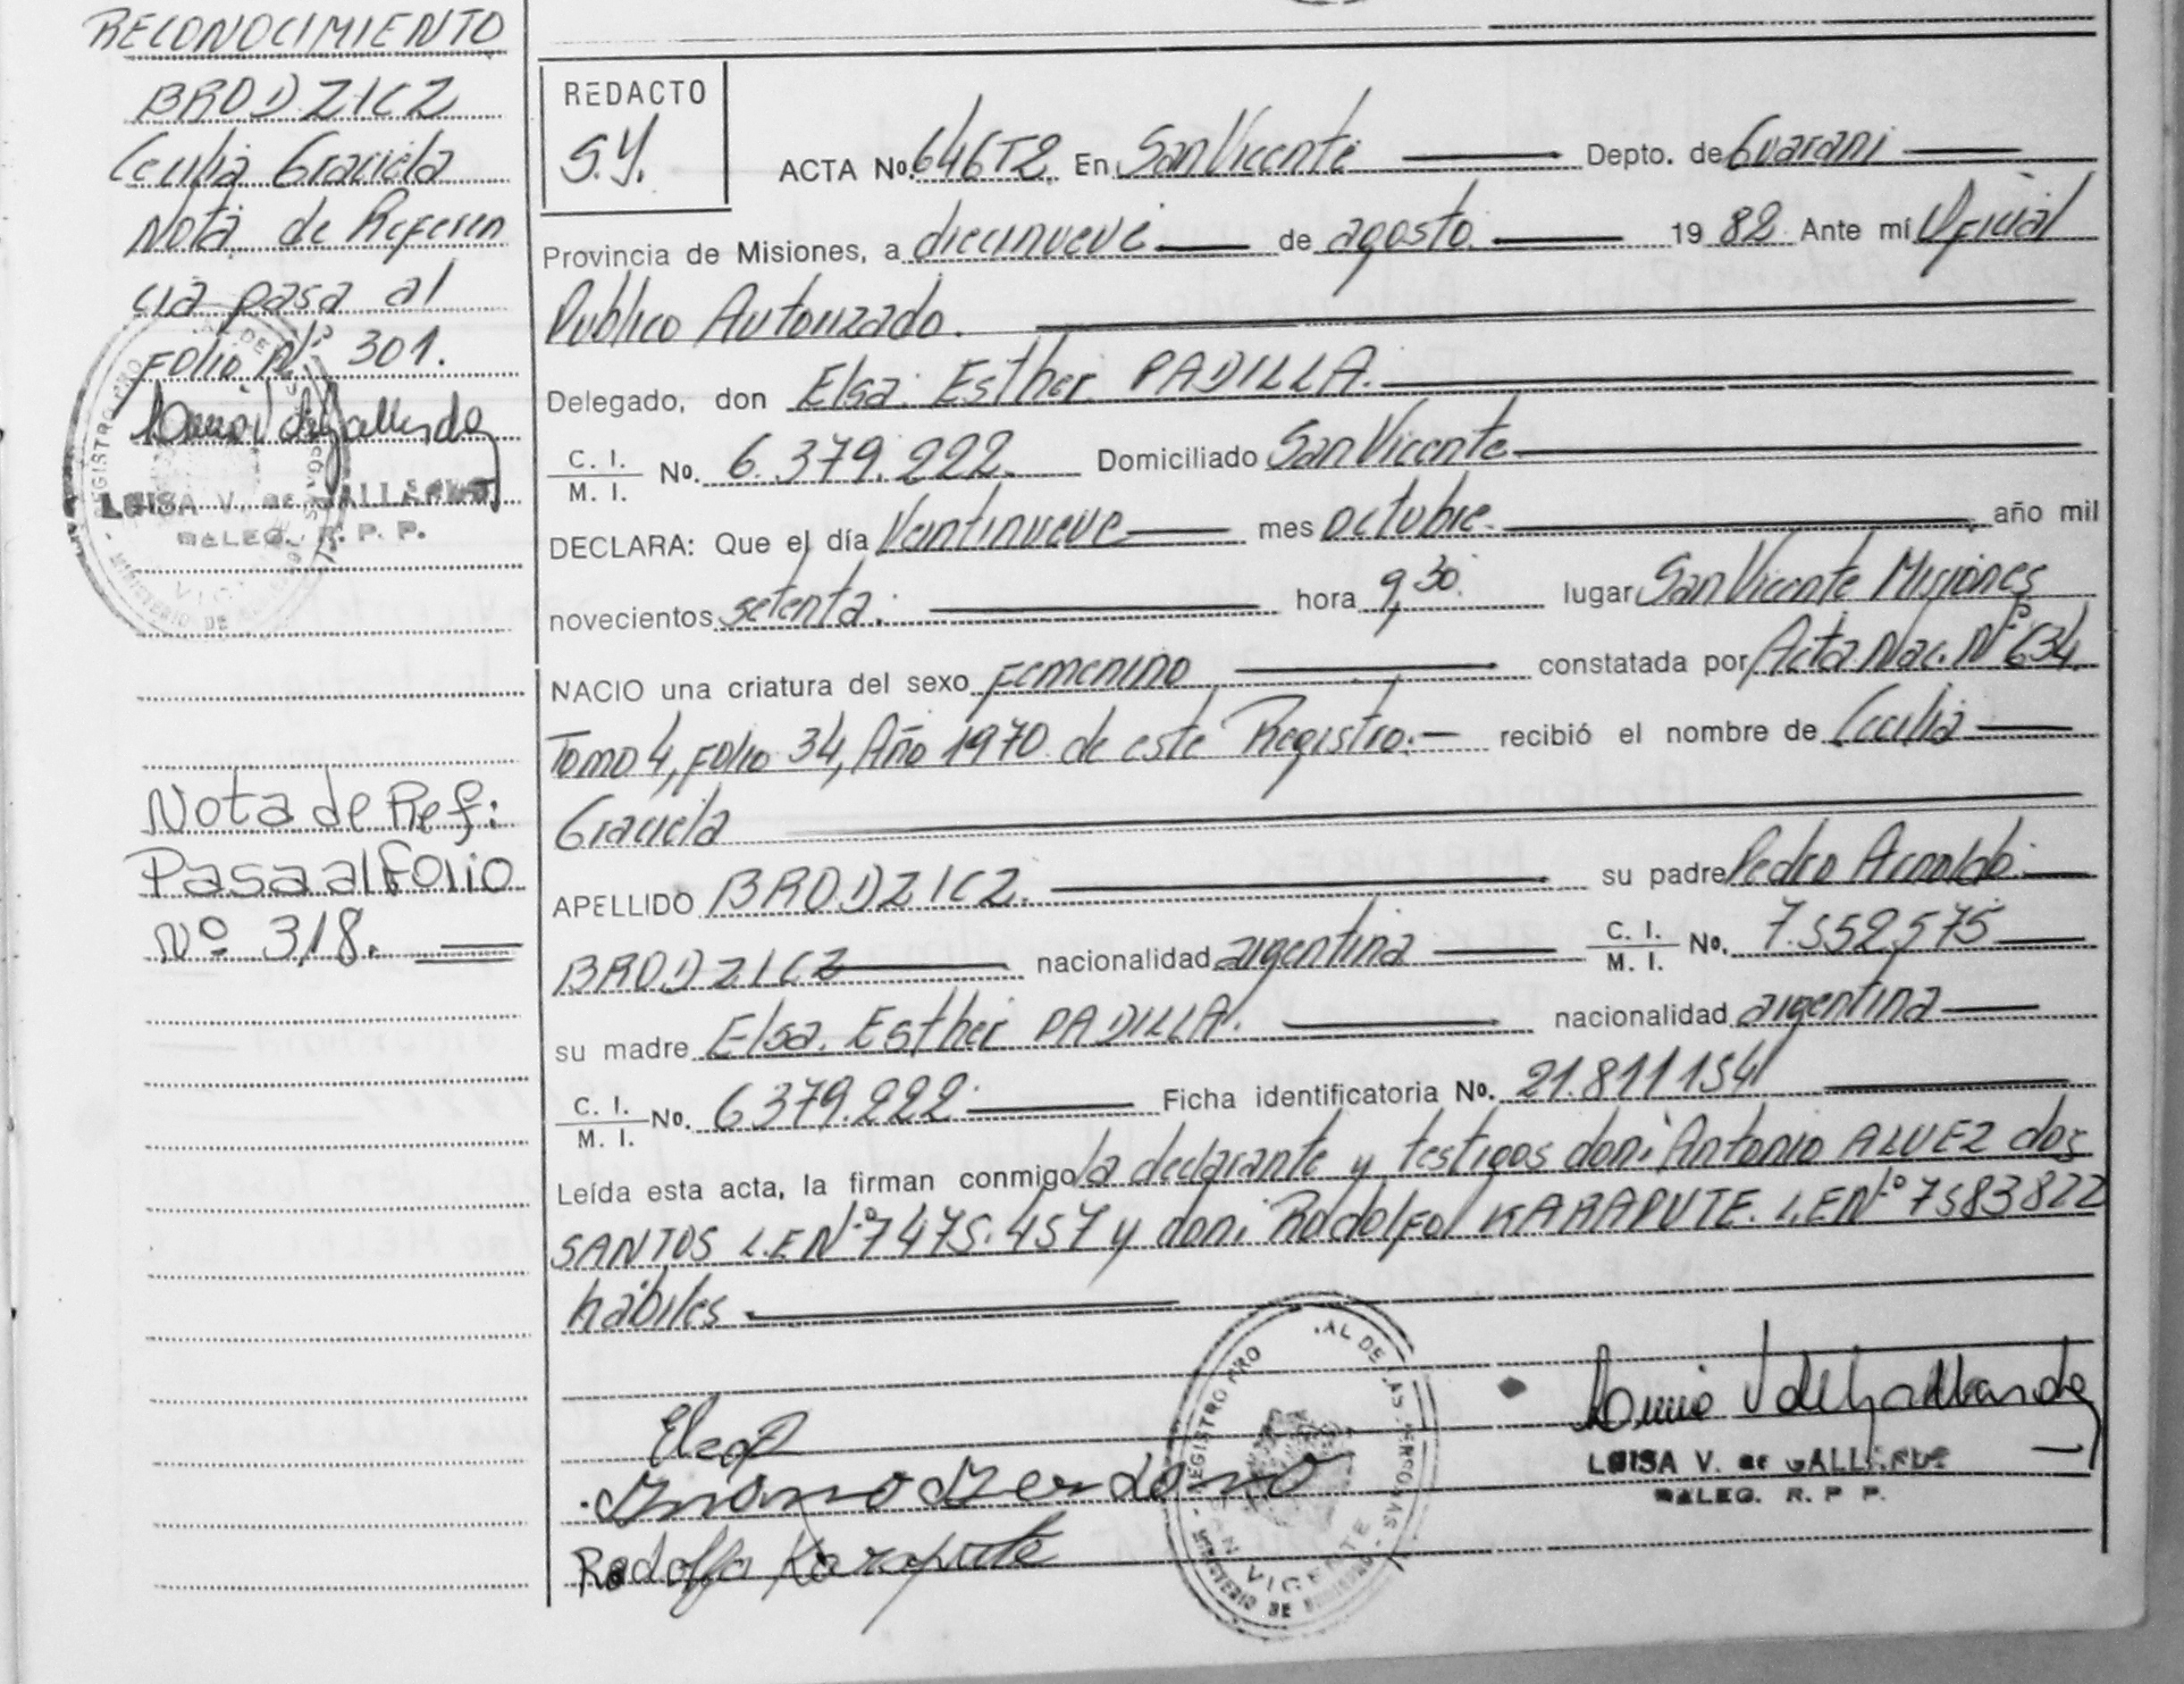 RECONOCIMIENTO
BRODZICZ
Cecilia Graciela
Nota de Referen
cia pasa al
Folio Nº 301.
LUISA V. de GALLARDO
DELEG. R. P. P.
Nota de Ref:
Pasa al Folio
Nº 318.
REDACTO
S.Y.
ACTA No. 646T2 En San Vicente Depto. de Guarani
Provincia de Misiones, a diecinueve de agosto 1982 Ante mí Oficial
Publico Autorizado.
Delegado, don Elsa Esther PADILLA.
C. I. / M. I. No. 6.379.222. Domiciliado San Vicente
DECLARA: Que el día Veintinueve mes octubre año mil
novecientos setenta. hora 9,30 lugar San Vicente Misiones
NACIO una criatura del sexo Femenino constatada por Acta Nac. Nº 634
Tomo 4, Folio 34, Año 1970 de este Registro.- recibió el nombre de Cecilia
Graciela
APELLIDO BRODZICZ. su padre Pedro Arnoldo
BRODZICZ nacionalidad argentina C. I. / M. I. No. 7.552,575
su madre Elsa Esther PADILLA. nacionalidad argentina
C. I. / M. I. No. 6379.222 Ficha identificatoria No. 21.811154
Leída esta acta, la firman conmigo la declarante y testigos don: Antonio ALVEZ dos
SANTOS L.E Nº 7475.457 y don: Rodolfo KARAPUTE. L.E Nº 7583822
hábiles
REGISTRO PRO AL DE LAS PERSONAS
MINISTERIO DE GOBIERNO
VICENTE
Rodolfo Karapute
LUISA V. de GALLARDO
DELEG. R. P. P.